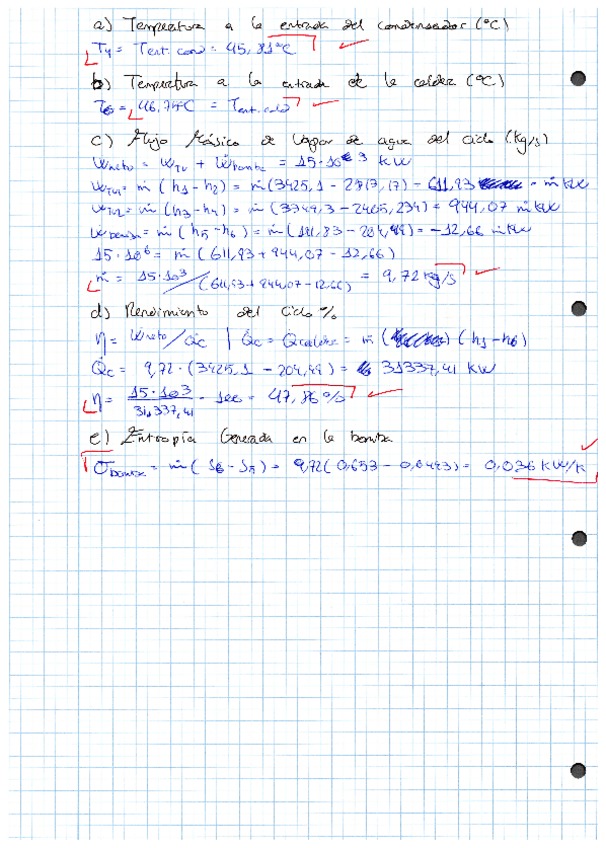 a) Temperatura a la entrada del condensador (°C)
T4 = Tent. cond = 45,81°C
b) Temperatura a la entrada de la caldera (°C)
T6 = 46,74°C = Tent. cald
c) Flujo Másico de Vapor de agua del ciclo (kg/s)
Wneto = WTV + Wbomba = 15·10 3 kW
WTV1 = ṁ (h1 - h2) = ṁ (3425,1 - 2813,17) = 611,93 ṁ kW
WTV2 = ṁ (h3 - h4) = ṁ (3349,3 - 2405,234) = 944,07 ṁ kW
Wbomba = ṁ (h5 - h6) = ṁ (191,83 - 204,49) = -12,66 ṁ kW
15·10⁶ = ṁ (611,93 + 944,07 - 12,66)
ṁ = 15·10³/(611,93 + 944,07 - 12,66) = 9,72 kg/s
d) Rendimiento del Ciclo %
η = Wneto/Qc | Qc = Qcaldera = ṁ (h1 - h6)
Qc = 9,72 · (3425,1 - 204,49) = 31337,41 kW
η = 15·10³/31.337,41 · 100 = 47,86 %
e) Entropía Generada en la bomba
σbomba = ṁ (s6 - s5) = 9,72 (0,653 - 0,6493) = 0,036 kW/K